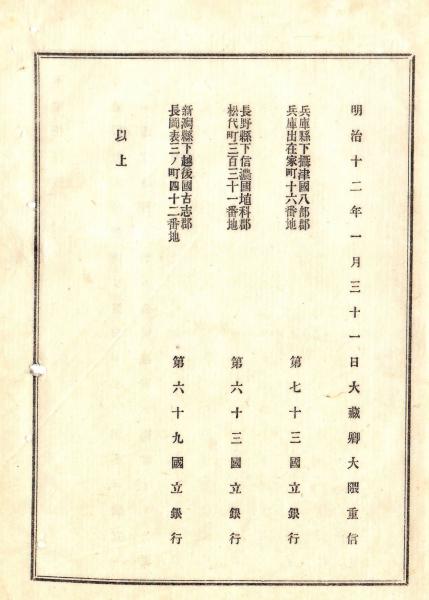 明治十二年一月三十一日大藏卿大隈重信
兵庫縣下攝津國八部郡
兵庫出在家町十六番地
第七十三國立銀行
長野縣下信濃國埴科郡
松代町三百三十一番地
第六十三國立銀行
新潟縣下越後國古志郡
長岡表三ノ町四十二番地
第六十九國立銀行
以上